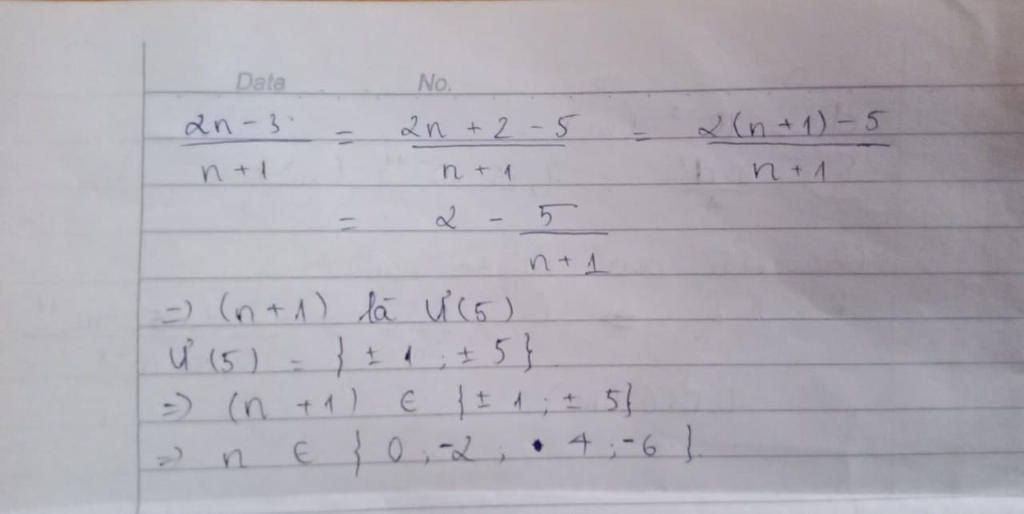 Date No.
2n - 3 / n + 1 = 2n + 2 - 5 / n + 1 = 2(n + 1) - 5 / n + 1
= 2 - 5 / n + 1
=> (n + 1) là Ư(5)
Ư(5) = {± 1 ; ± 5}
=> (n + 1) ∈ {± 1 ; ± 5}
=> n ∈ { 0 ; -2 ; 4 ; -6 }